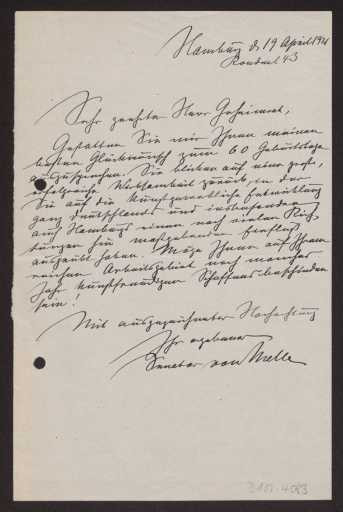 Hamburg d. 19 April 1921
Sehr geehrter Herr Geheimrat,
Gestatten Sie mir Ihnen meinen
besten Glückwunsch zum 60 Geburtstage
auszusprechen. Sie blicken auf eine große,
erfolgreiche Wirksamkeit zurück, in der
Sie auf die kunstgewerbliche Entwicklung
ganz Deutschlands und insbesondere
auch Hamburgs einen nach vielen Rich-
tungen hin maßgebenden Einfluß
ausgeübt haben. Möge Ihnen auf Ihrem
reichen Arbeitsgebiet noch manches
Jahr kunstfreudigen Schaffens beschieden
sein!
Mit ausgezeichneter Hochachtung
Ihr ergebener
Senator von Melle
4083